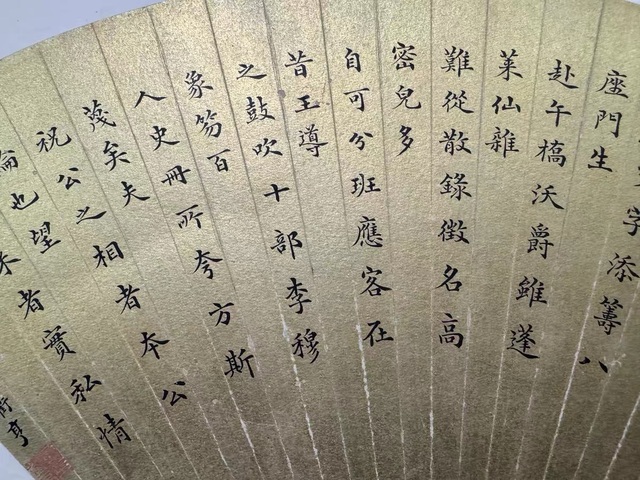 字添籌八
座門生
赴午橋沃爵雖蓬
萊仙雜
難從散錄徵名高
密兒多
自可分班應客在
昔王導
之鼓吹十部李穆
象笏百
人史冊所夸方斯
蔑矣夫
祝公之相者本公
也望
者實私情
亨